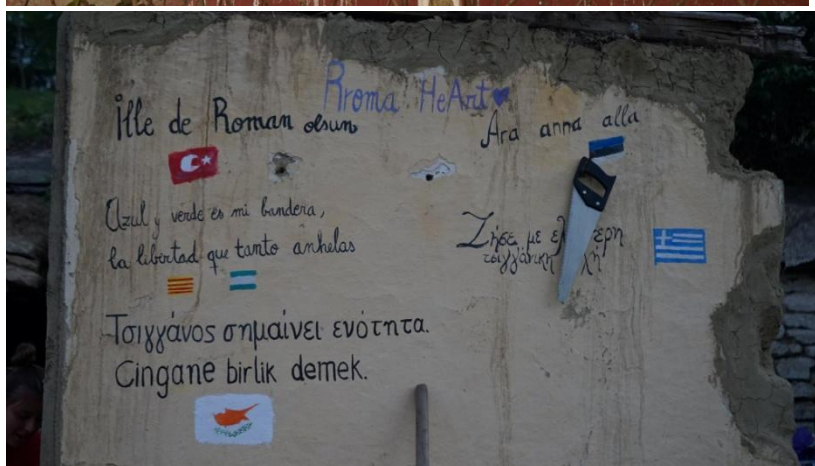 Rroma HeArt
İlle de Roman olsun
Ara anna alla
Azul y verde es mi bandera,
la libertad que tanto anhelas
Ζήσε με
τσιγγάνικη
Τσιγγάνος σημαίνει ενότητα.
Cingane birlik demek.